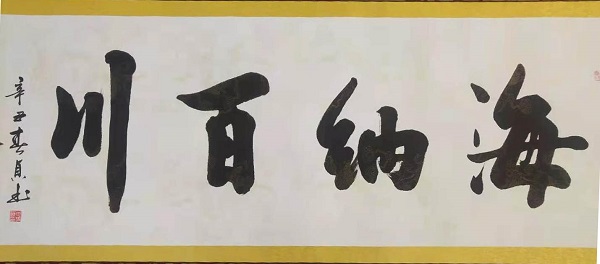 海纳百川
辛丑春